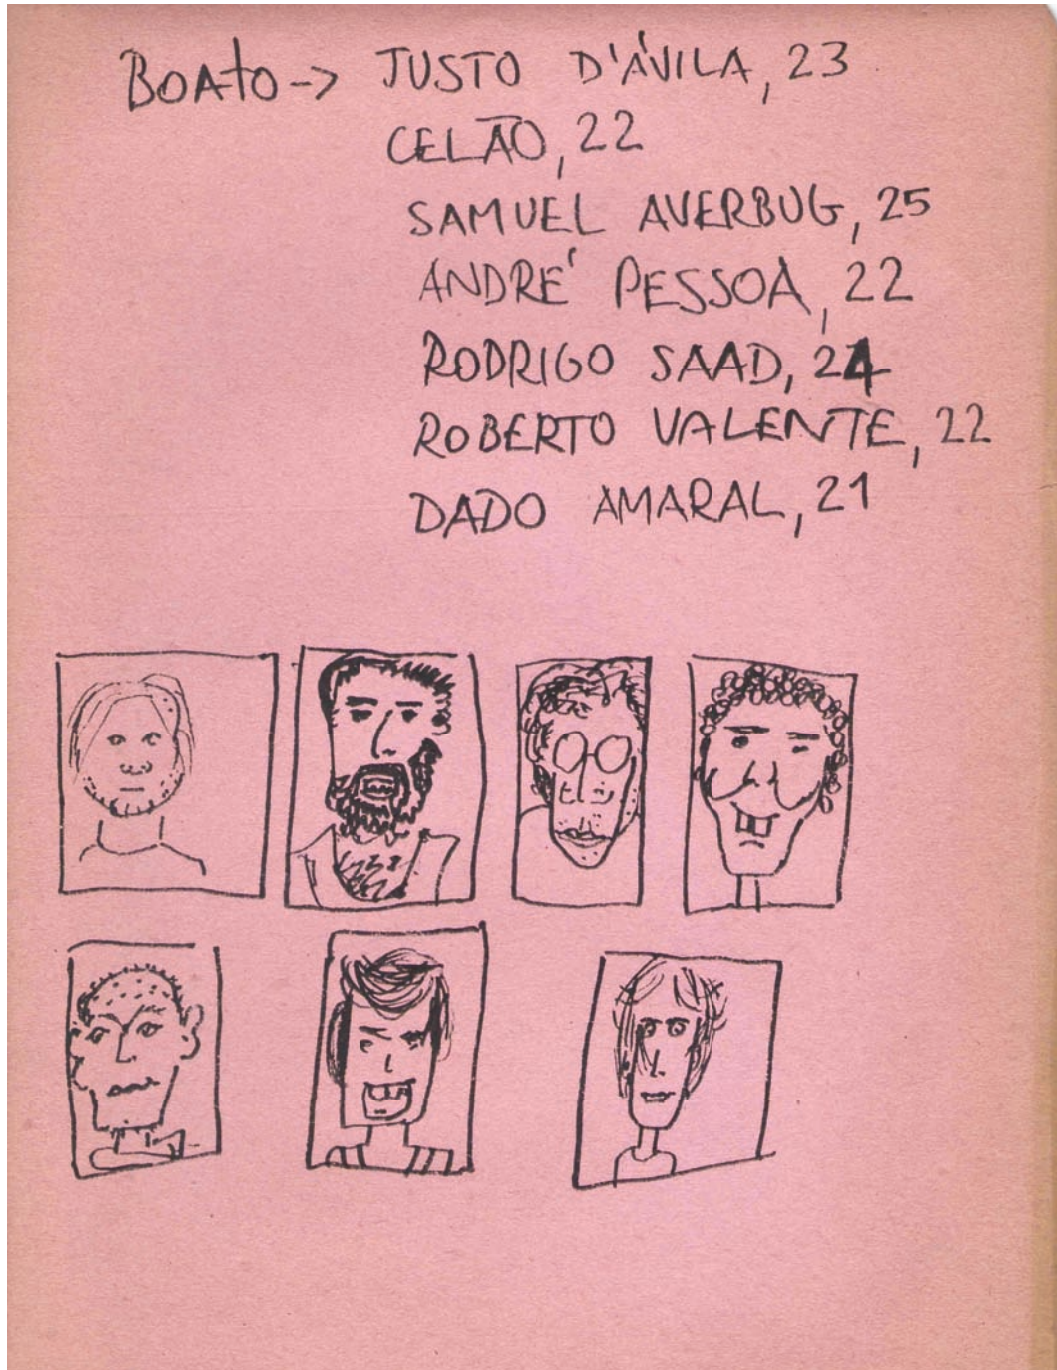 BOAtO-> JUSTO D'ÁVILA, 23
CELÃO, 22
SAMUEL AVERBUG, 25
ANDRÉ PESSOA, 22
RODRIGO SAAD, 24
ROBERTO VALENTE, 22
DADO AMARAL, 21